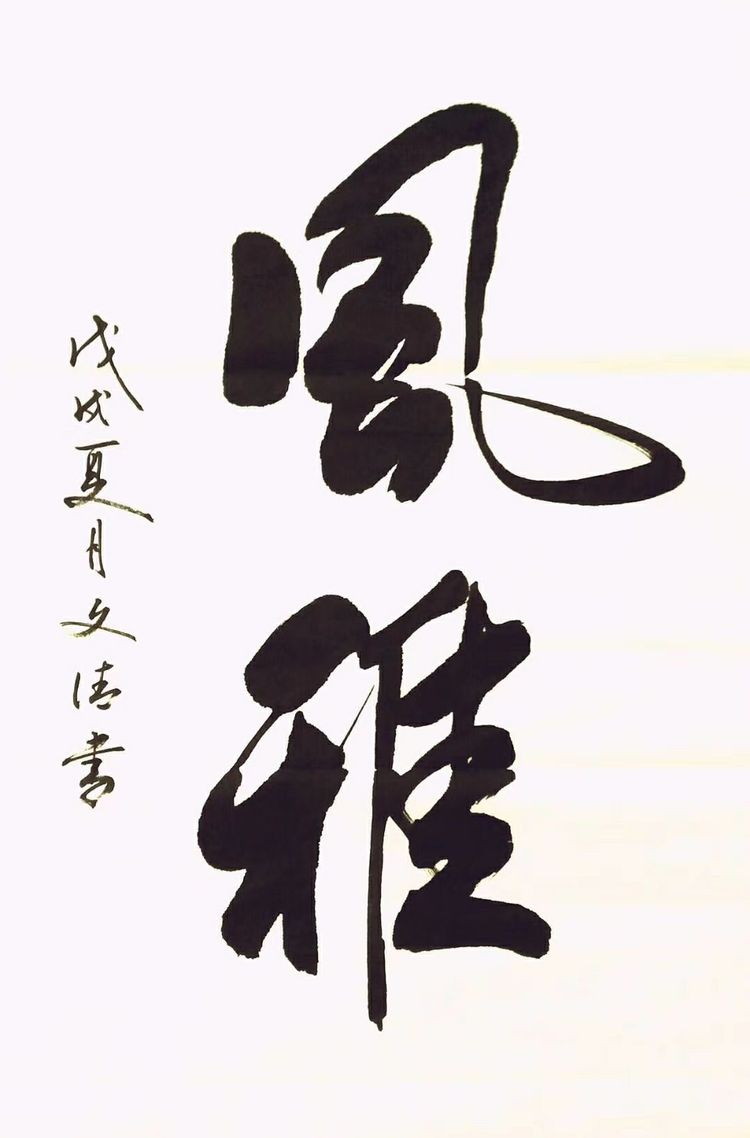 風雅
戊戌夏月文清書